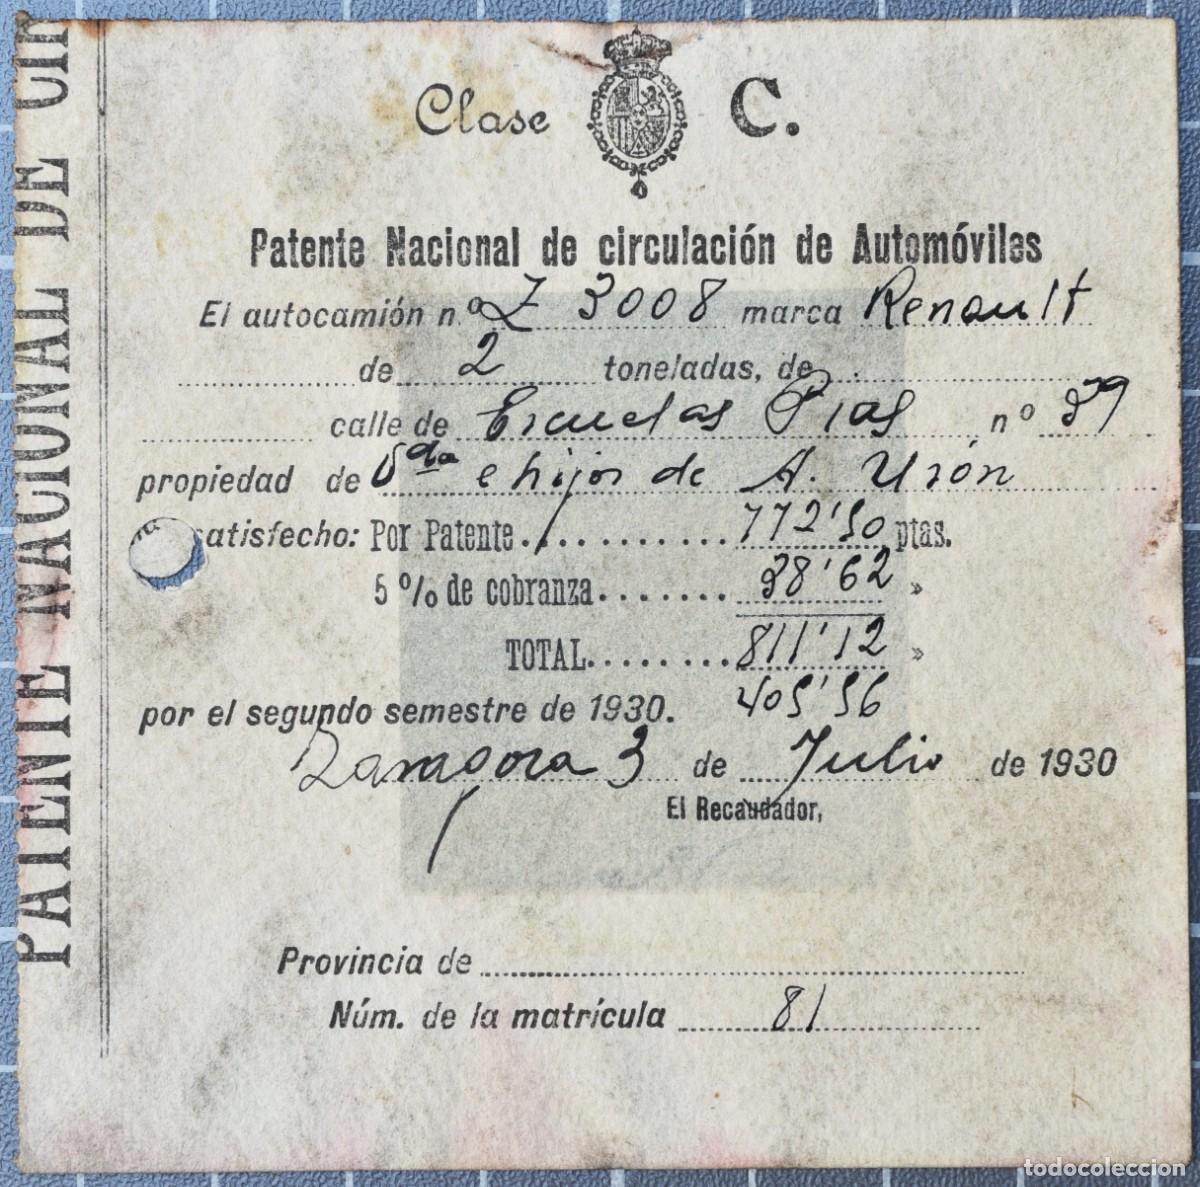 PATENTE NACIONAL DE CIR
Clase C.
Patente Nacional de circulación de Automóviles
El autocamión n.º Z 3008 marca Renault
de 2 toneladas, de
calle de Escuelas Pias nº 39
propiedad de Vda e hijos de A. Usón
satisfecho: Por Patente 772'50 ptas.
5 % de cobranza 38'62 »
TOTAL 811'12 »
por el segundo semestre de 1930. 405'56
Zaragoza 3 de Julio de 1930
El Recaudador,
Provincia de
Núm. de la matrícula 81
todocoleccion